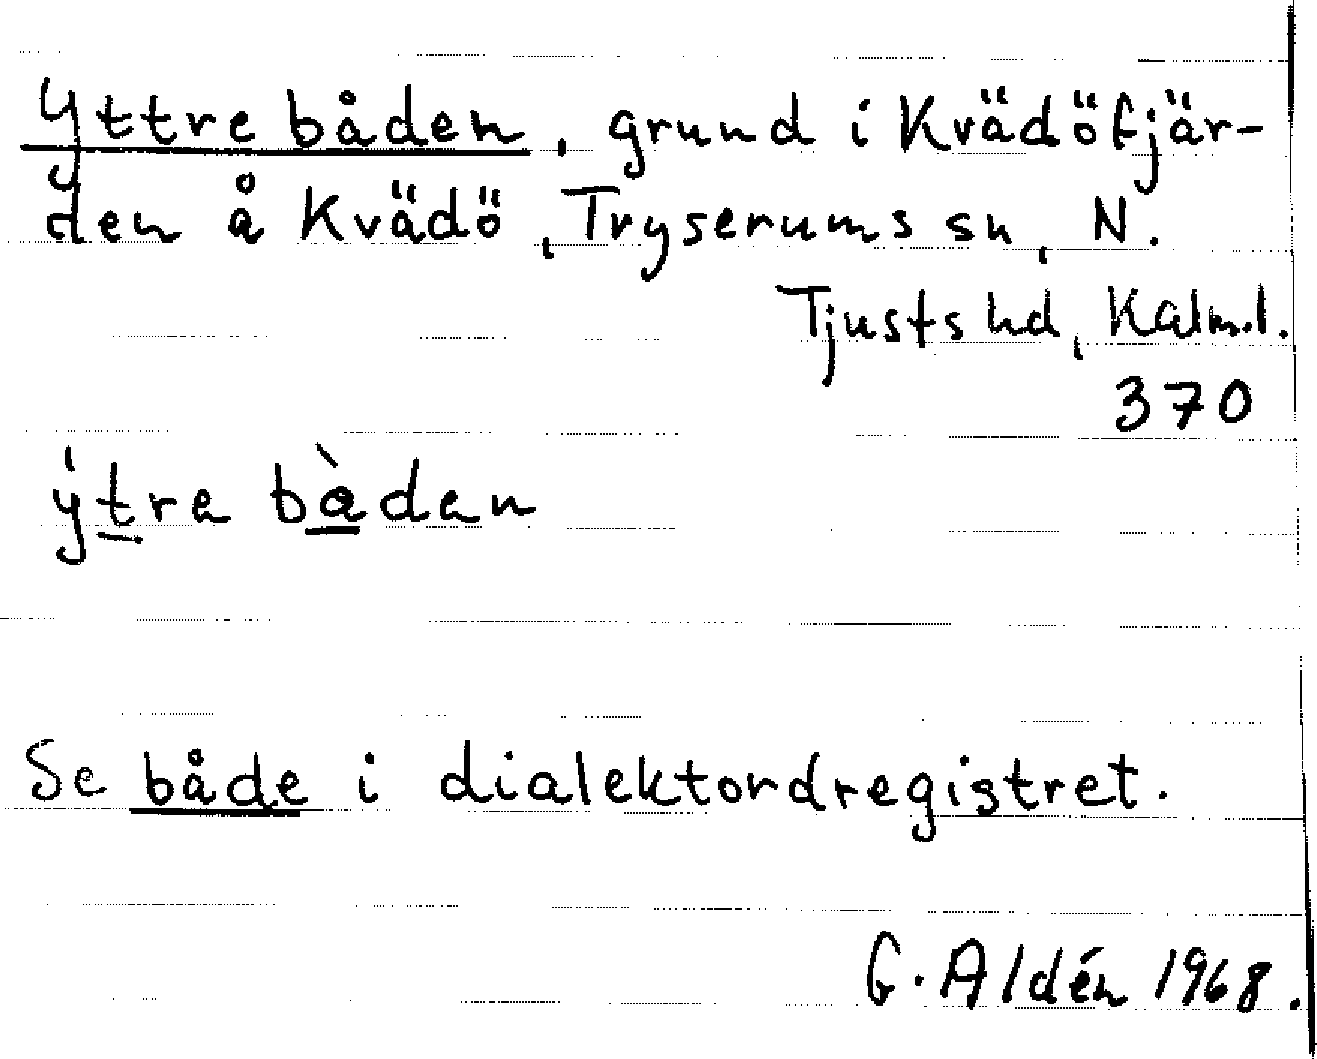 Yttre båden, grund i Kvädöfjär-
den å Kvädö, Tryserums sn, N.
Tjusts hd, Kalm.l.
370
ýtra bàdan
Se både i dialektordregistret.
G. Aldén 1968.